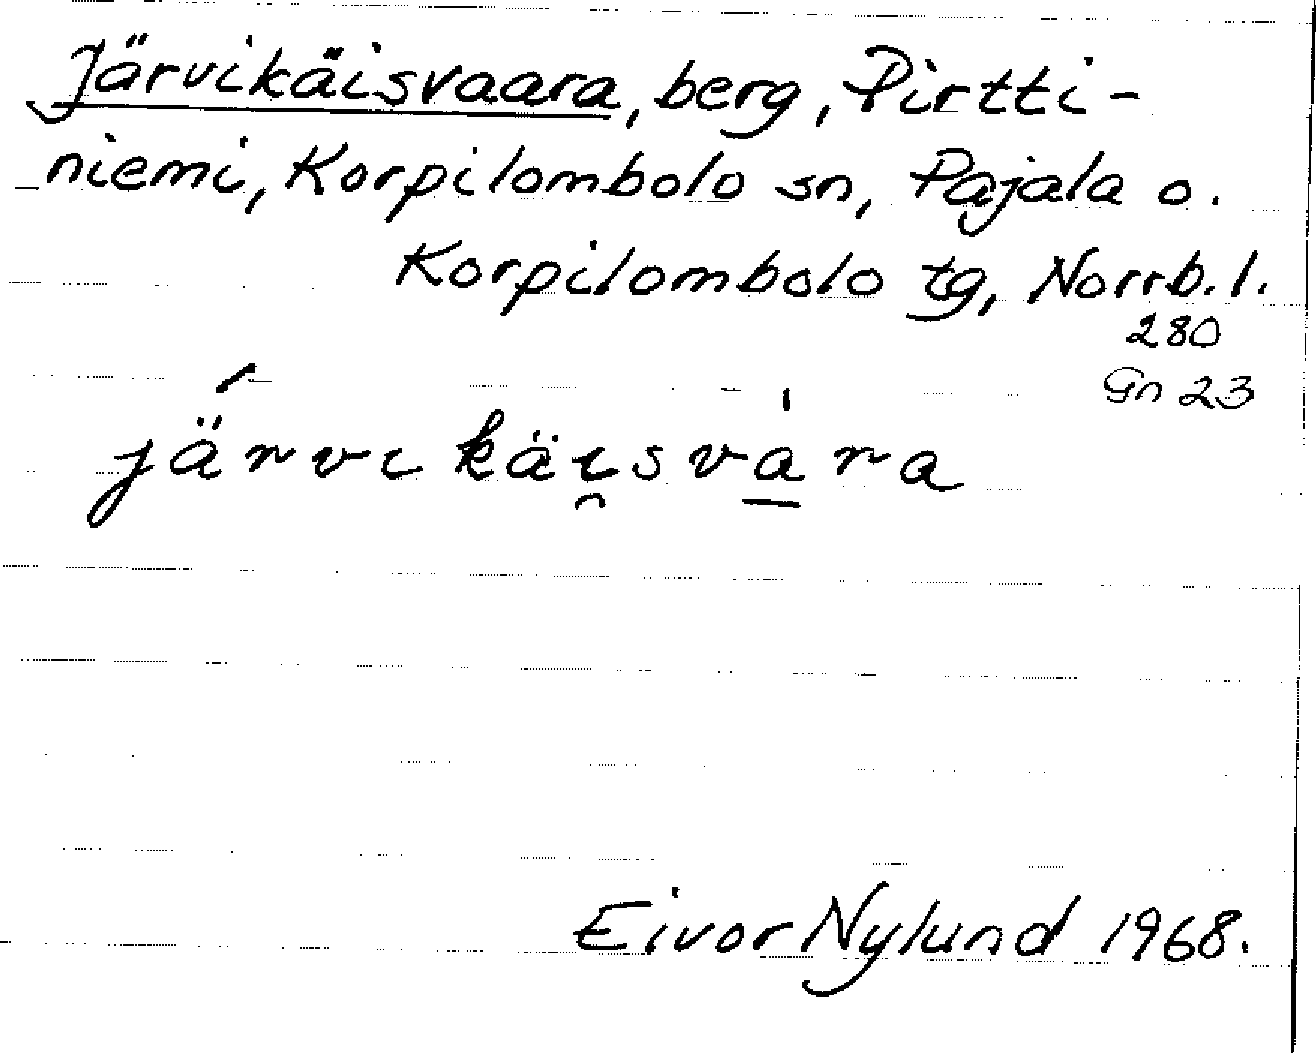 Järvikäisvaara, berg, Pirtti-
niemi, Korpilombolo sn, Pajala o.
Korpilombolo tg, Norrb. l.
280
Gn 23
järvɩkäɩ̯sva̱ra
Eivor Nylund 1968.